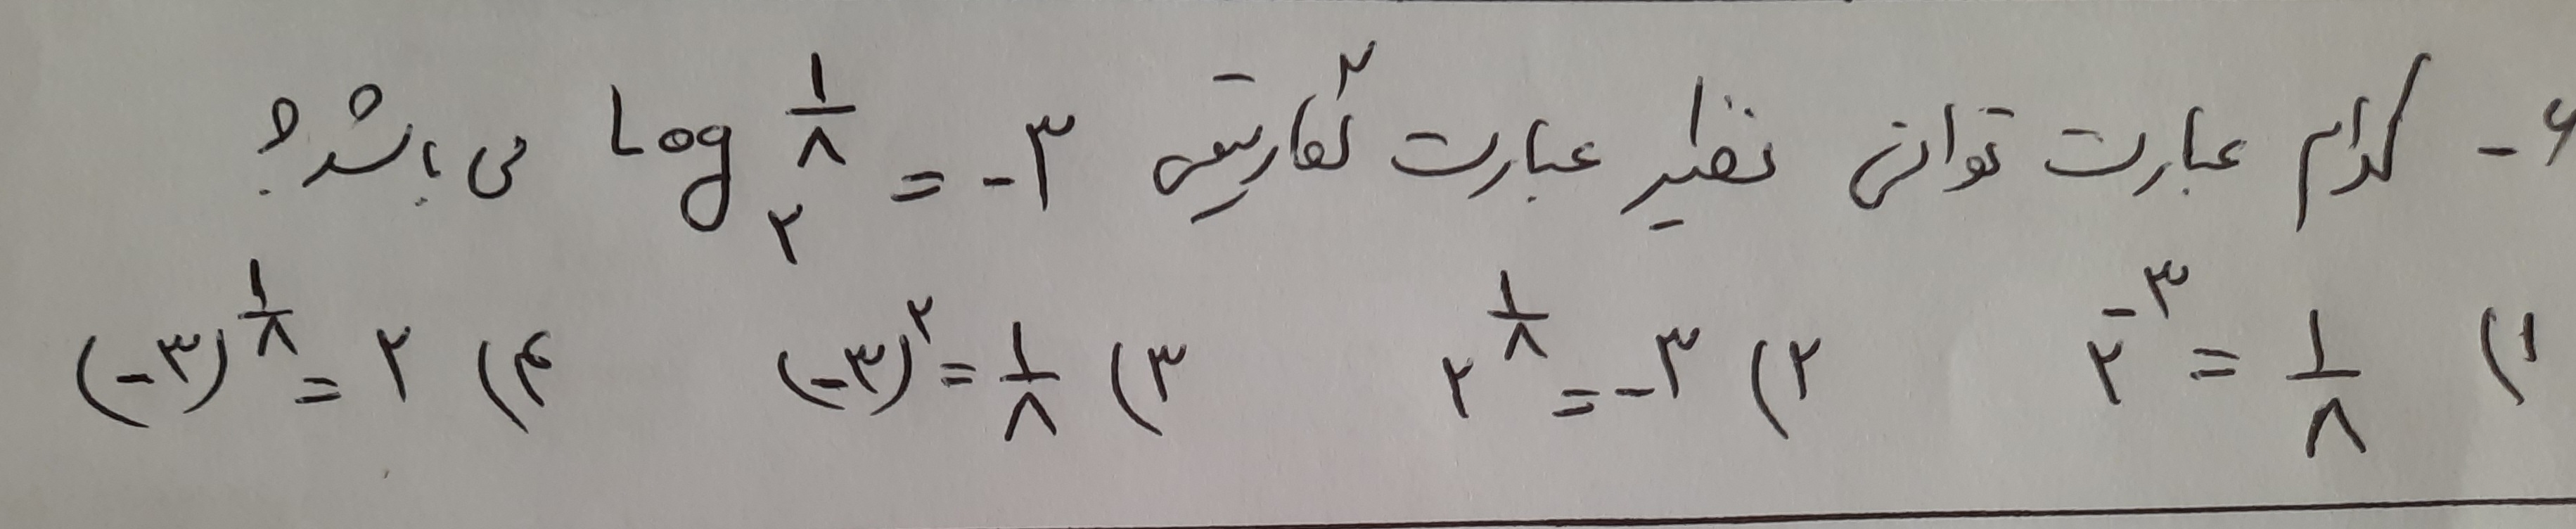 ۶- کدام عبارت توانی نظیر عبارت لگاریتمی Log₂ ۱/۸ = -۳ می باشد؟
۱) ۲^-۳ = ۱/۸ ۲) ۲^۱/۸ = -۳ ۳) (-۳)^۲ = ۱/۸ ۴) (-۳)^۱/۸ = ۲